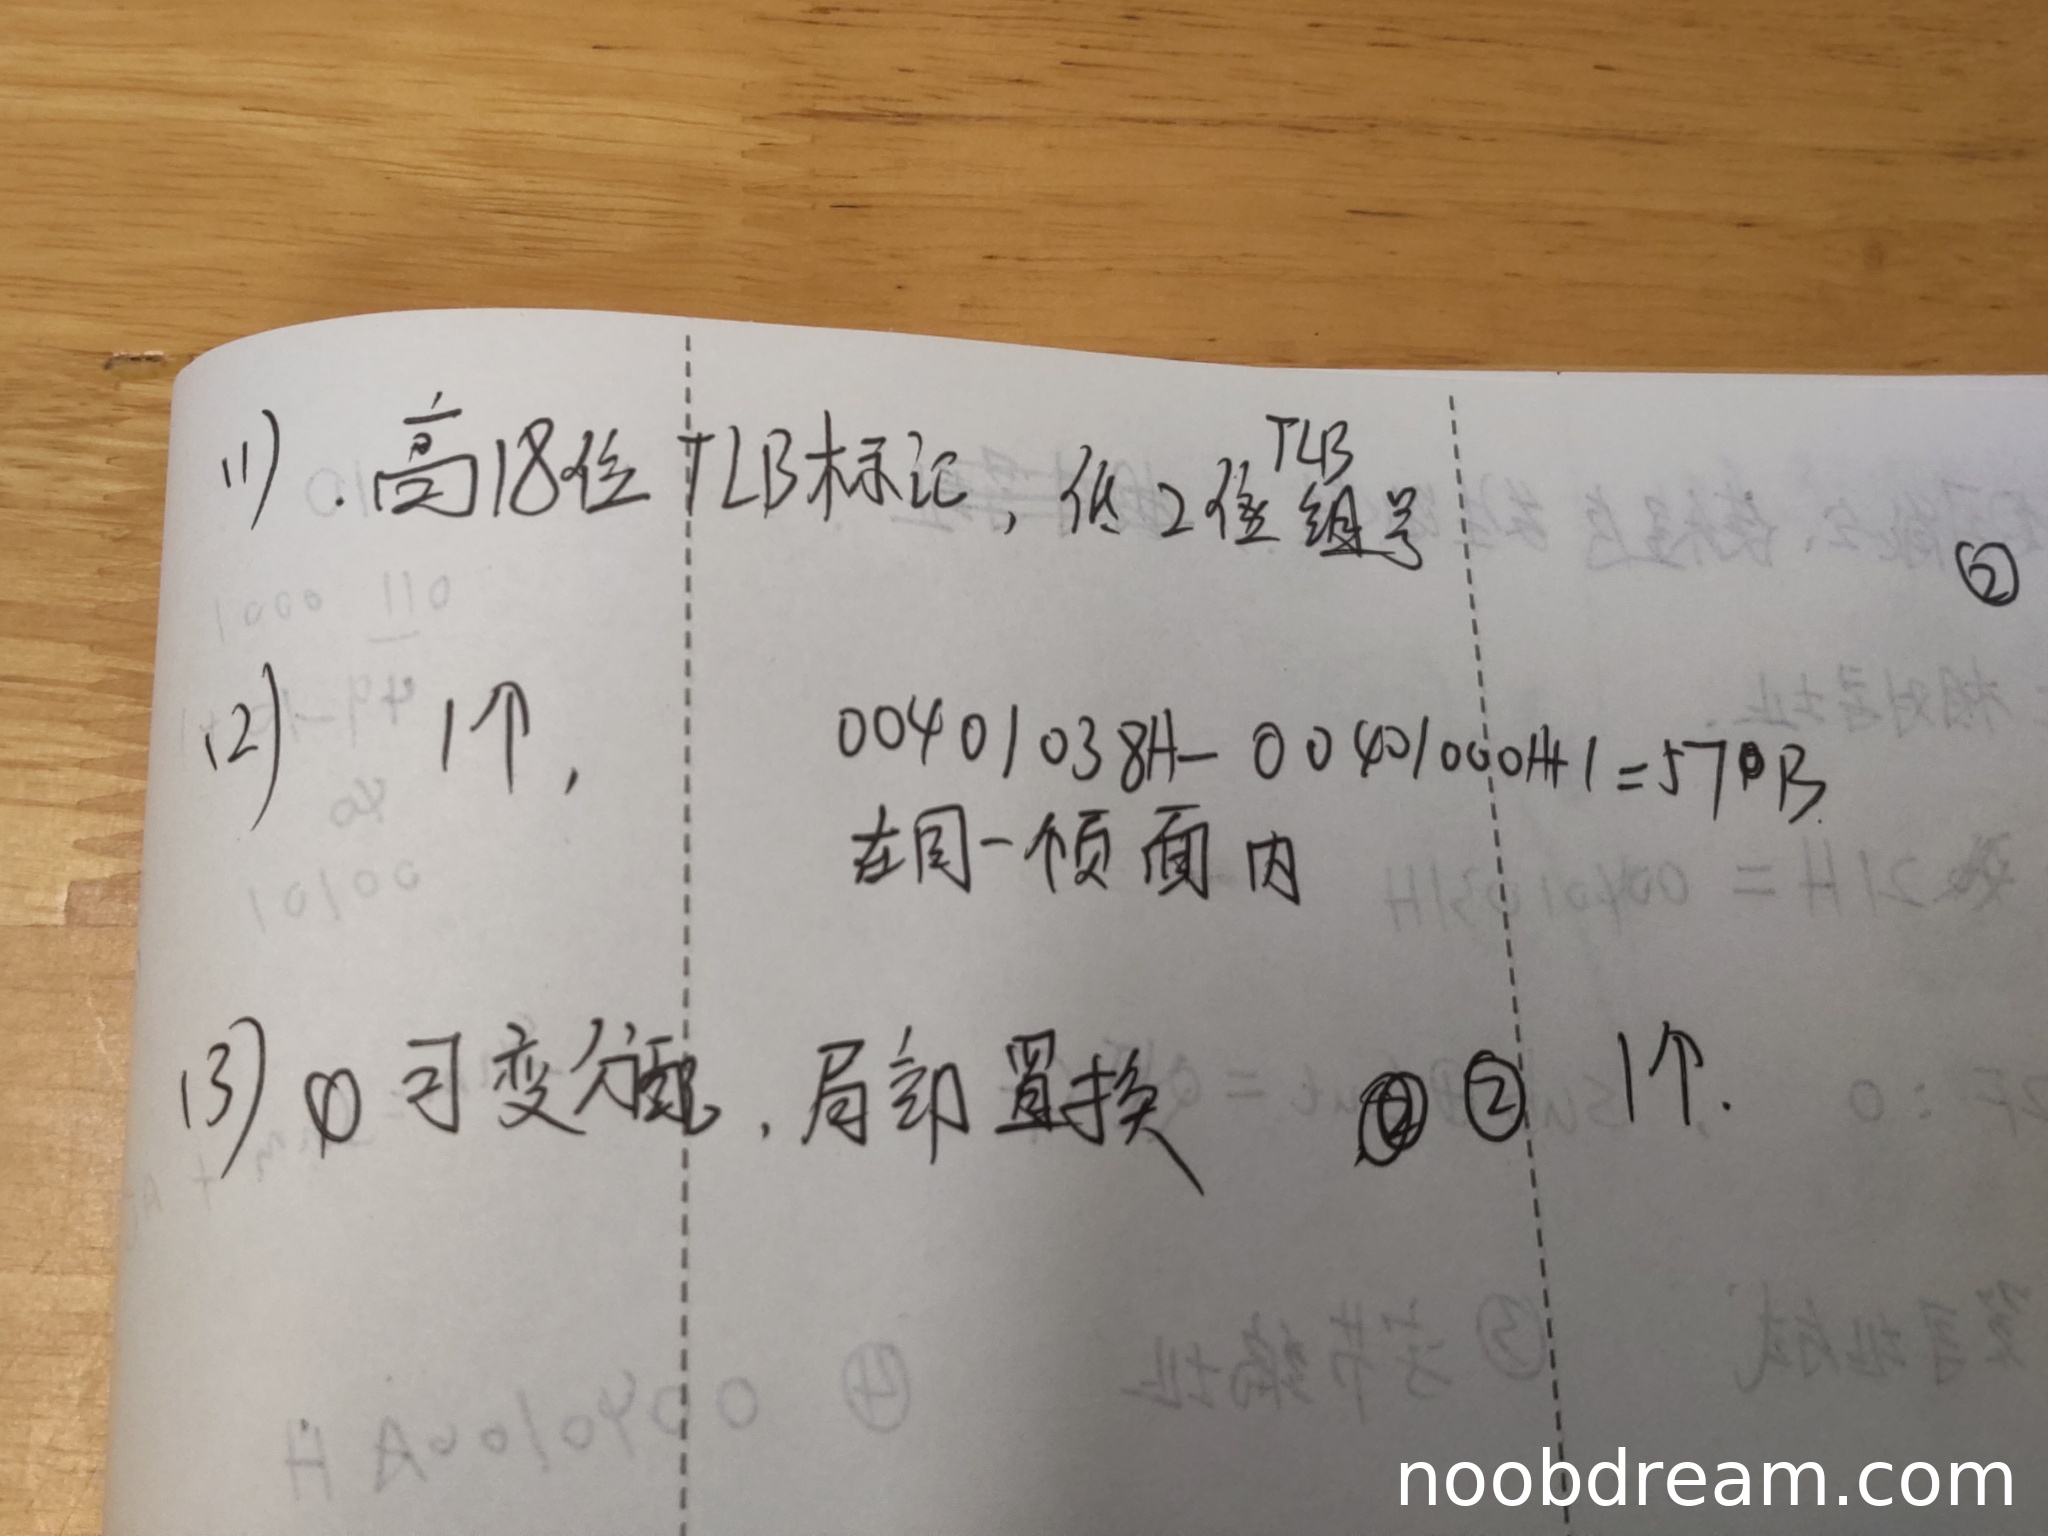 (1). 高18位TLB标记, 低2位TLB组号
②
(2) 1个, 00401038H- 00401000H+1=57B
在同一个页面内
(3) ① 可变分配, 局部置换 ② 1个.
④ 0040106AH
③ 字节编址
noobdream.com